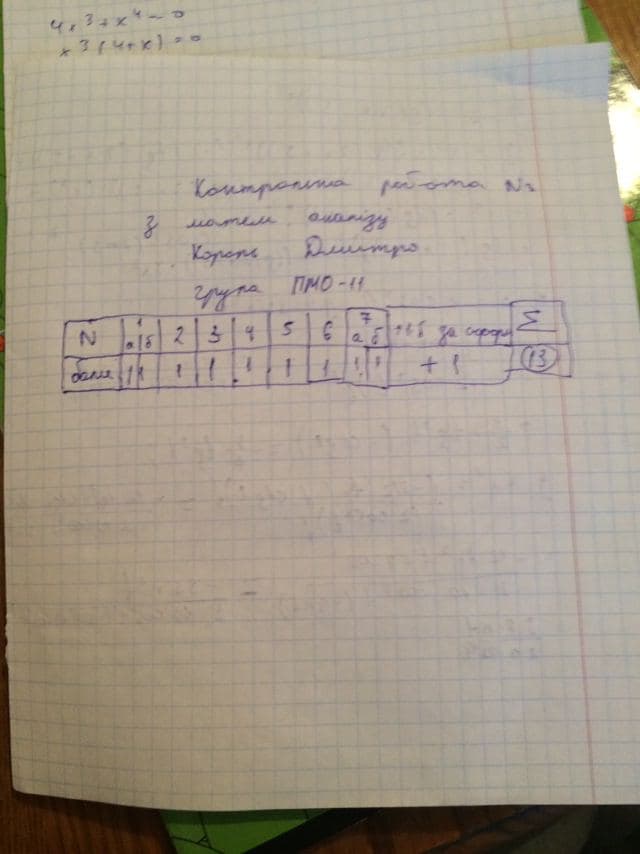 4x³+x⁴=0
x³(4+x)=0
Контрольна робота №
з матем аналізу
Король Дмитро
група ПМО-11
N 1 а б 2 3 4 5 6 7 а б +1 б за Σ
бали 1 1 1 1 1 1 1 1 1 +1 13